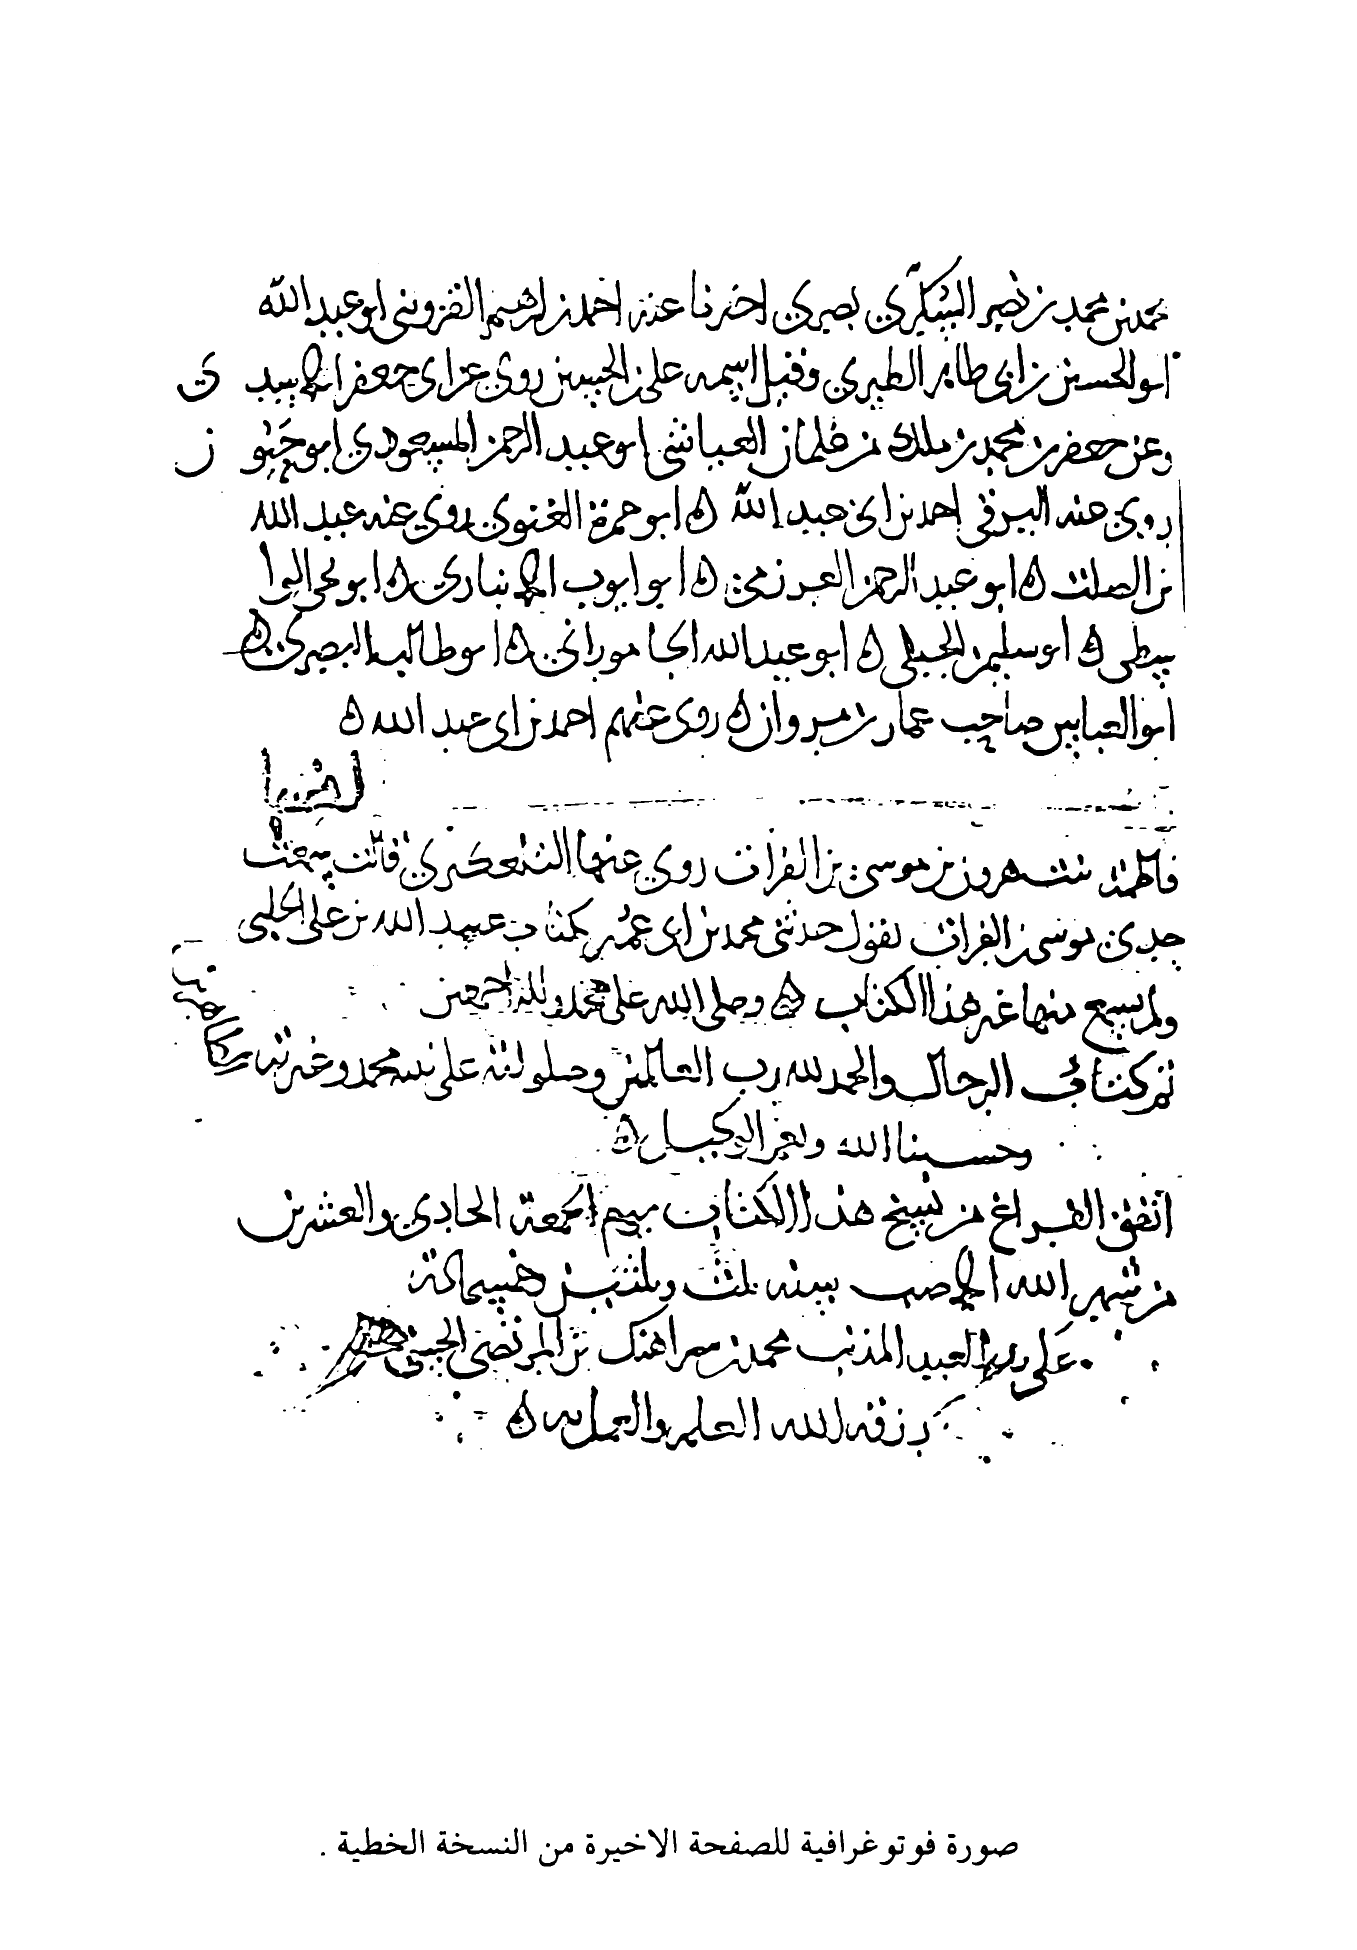 محمد بن محمد بن نصر السكري بصري اخبرنا عنه احمد بن ابرهيم القزويني ابو عبد الله
ابو الحسين بن ابي طاهر الطبري وقيل اسمه علي بن الحسين روي عن ابي جعفر الاسدي
وعن جعفر بن محمد بن ملك من غلمان العياشي ابو عبد الرحمن المسعودي ابو
روي عنه البرقي احمد بن ابي عبد الله ه ابو حمزة الغنوي روي عنه عبد الله
بن الصلت ه ابو عبد الرحمن العرزمي ه ابو ايوب الانباري ه ابو يحي الوا
سطي ه ابو سليمن الجبلي ه ابو عبد الله الجاموراني ه ابو طالب البصري ه
ابو العباس صاحب عمار بن مروان ه روي عنهم احمد بن ابي عبد الله ه
فاطمة بنت هرون بن موسي بن الفرات روي عنها التلعكبري قالت سمعت
جدي موسي بن الفرات يقول حدثني محمد بن ابي عمير بكتاب عبيد الله بن علي الحلبي
ولم يسمع منها غير هذا الكتاب ه وصلي الله علي محمد واله اجمعين
تم كتاب الرجال والحمد لله رب العالمين وصلواته علي نبيه محمد وعترته
وحسبنا الله ونعم الوكيل ه
اتفق الفراغ من نسخ هذا الكتاب يوم الجمعة الحادي والعشرين
من شهر الله الاصب سنة ثلث وثلثين وخمسمائة
علي يدي العبد المذنب محمد بن سراهنك بن المرتضي الحسني
رزقه الله العلم والعمل به ه
صورة فوتوغرافية للصفحة الاخيرة من النسخة الخطية .